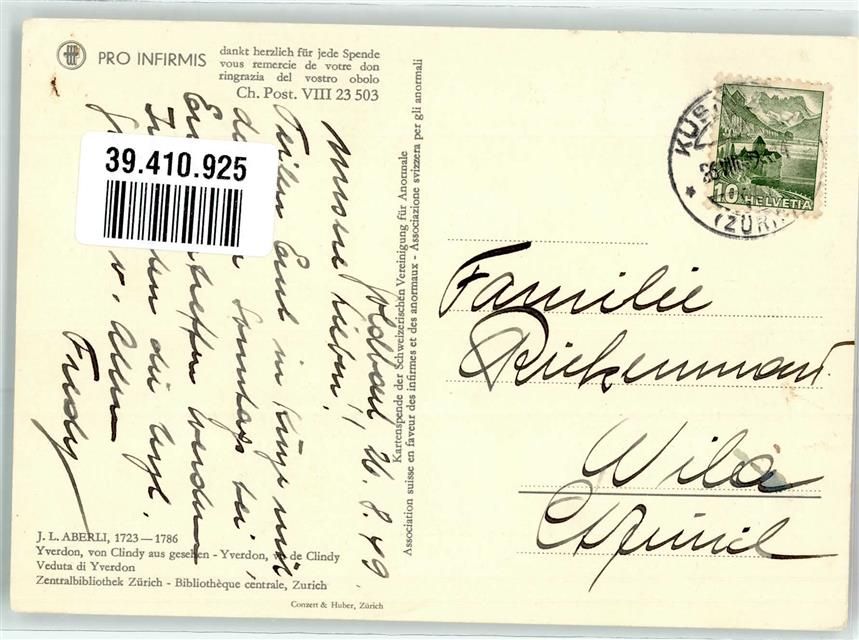 PRO INFIRMIS
dankt herzlich für jede Spende
vous remercie de votre don
ringrazia del vostro obolo
Ch. Post. VIII 23 503
39.410.925
Goldbach 26. 8. 49
Meine Lieben!
Teile Euch in Kürze mit
Sonntags bei
eintreffen werde
die
v. Allen
Fredy
Kartenspende der Schweizerischen Vereinigung für Anormale
Association suisse en faveur des infirmes et des anormaux - Associazione svizzera per gli anormali
KÜS
26.VIII.49
(ZÜRI
10 HELVETIA
Familie
Rickenmann
Wila
J. L. ABERLI, 1723—1786
Yverdon, von Clindy aus gesehen - Yverdon, v. de Clindy
Veduta di Yverdon
Zentralbibliothek Zürich - Bibliothèque centrale, Zurich
Conzett & Huber, Zürich